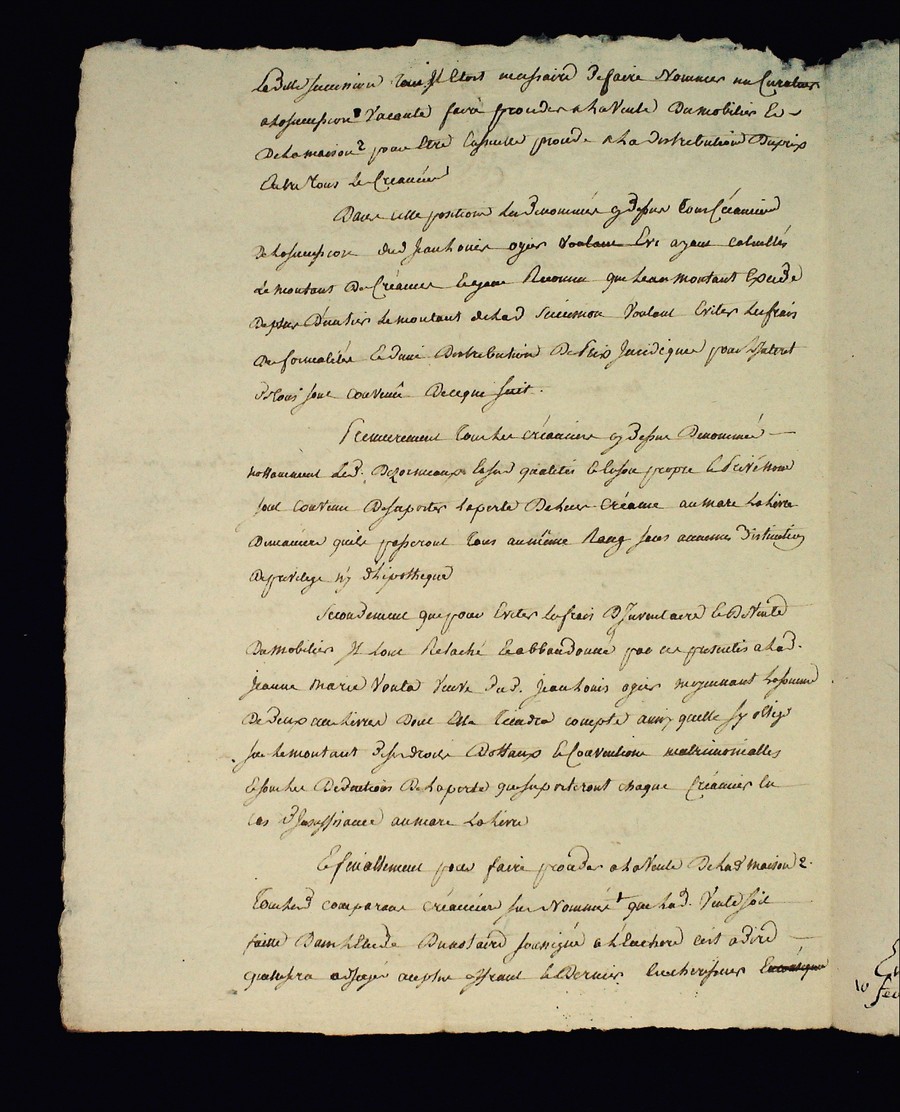 Ladite succession il étoit necessaire de faire Nommer un Curateur
a la succession Vacante faire proceder a la Vente Du mobilier Et
De la maison pour Etre Ensuitte procedé a La distribution Du prix
Entre Tous Les Creanciers
Dans cette position Les Denommés cy dessus Tous Créanciers
De la succession dud. Jean Louis ogier Voulant Et ayant calcullés
Le montant De Créances Et ayant Reconnu que Leur montant Excede
De plus D'un tiers Le montant de Lad. succession Voulant Eviter Les frais
De formalités Et d'une Distribution De Prix Juridique pour L'Interet
De Tous sont convenu De ce que suit.
Premierement Tous Les créanciers cy dessus Denommés
nottamment Led. Dezormeaux En ses qualités Et En son propre Et Privé Nom
sont convenu De suporter La perte De Leur Créance au marc La Livre
De maniere qu'ils passeront Tous au même Rang sans aucunes distinction
De privilege n'y d'hipotheque
Secondement que pour Eviter Les frais D'Inventaire Et De Vente
Du mobilier Il sont Relaché Et abbandonné par ces presentes a Lad.
Jeanne Marie Veuve Dud. Jean Louis ogier moyennant La somme
De Deux cent Livres Dont Elle Tiendra compte ainsy quelle s'y oblige
sur Le montant de ses droits Dottaux Et Conventions matrimonialles
Et sous Les Deductions De La perte que suporteront chaque Créancier En
cas D'Insuffisance au marc La Livre
Et finallement pour faire proceder a La Vente De Lad. maison
Tous Les d. comparans créanciers sus Nommés que Lad. Vente soit
faitte Dans L'Etude Du notaire soussigné a L'Enchere c'est a dire
quelle sera adjugée au plus offrant Et Dernier Encherisseur